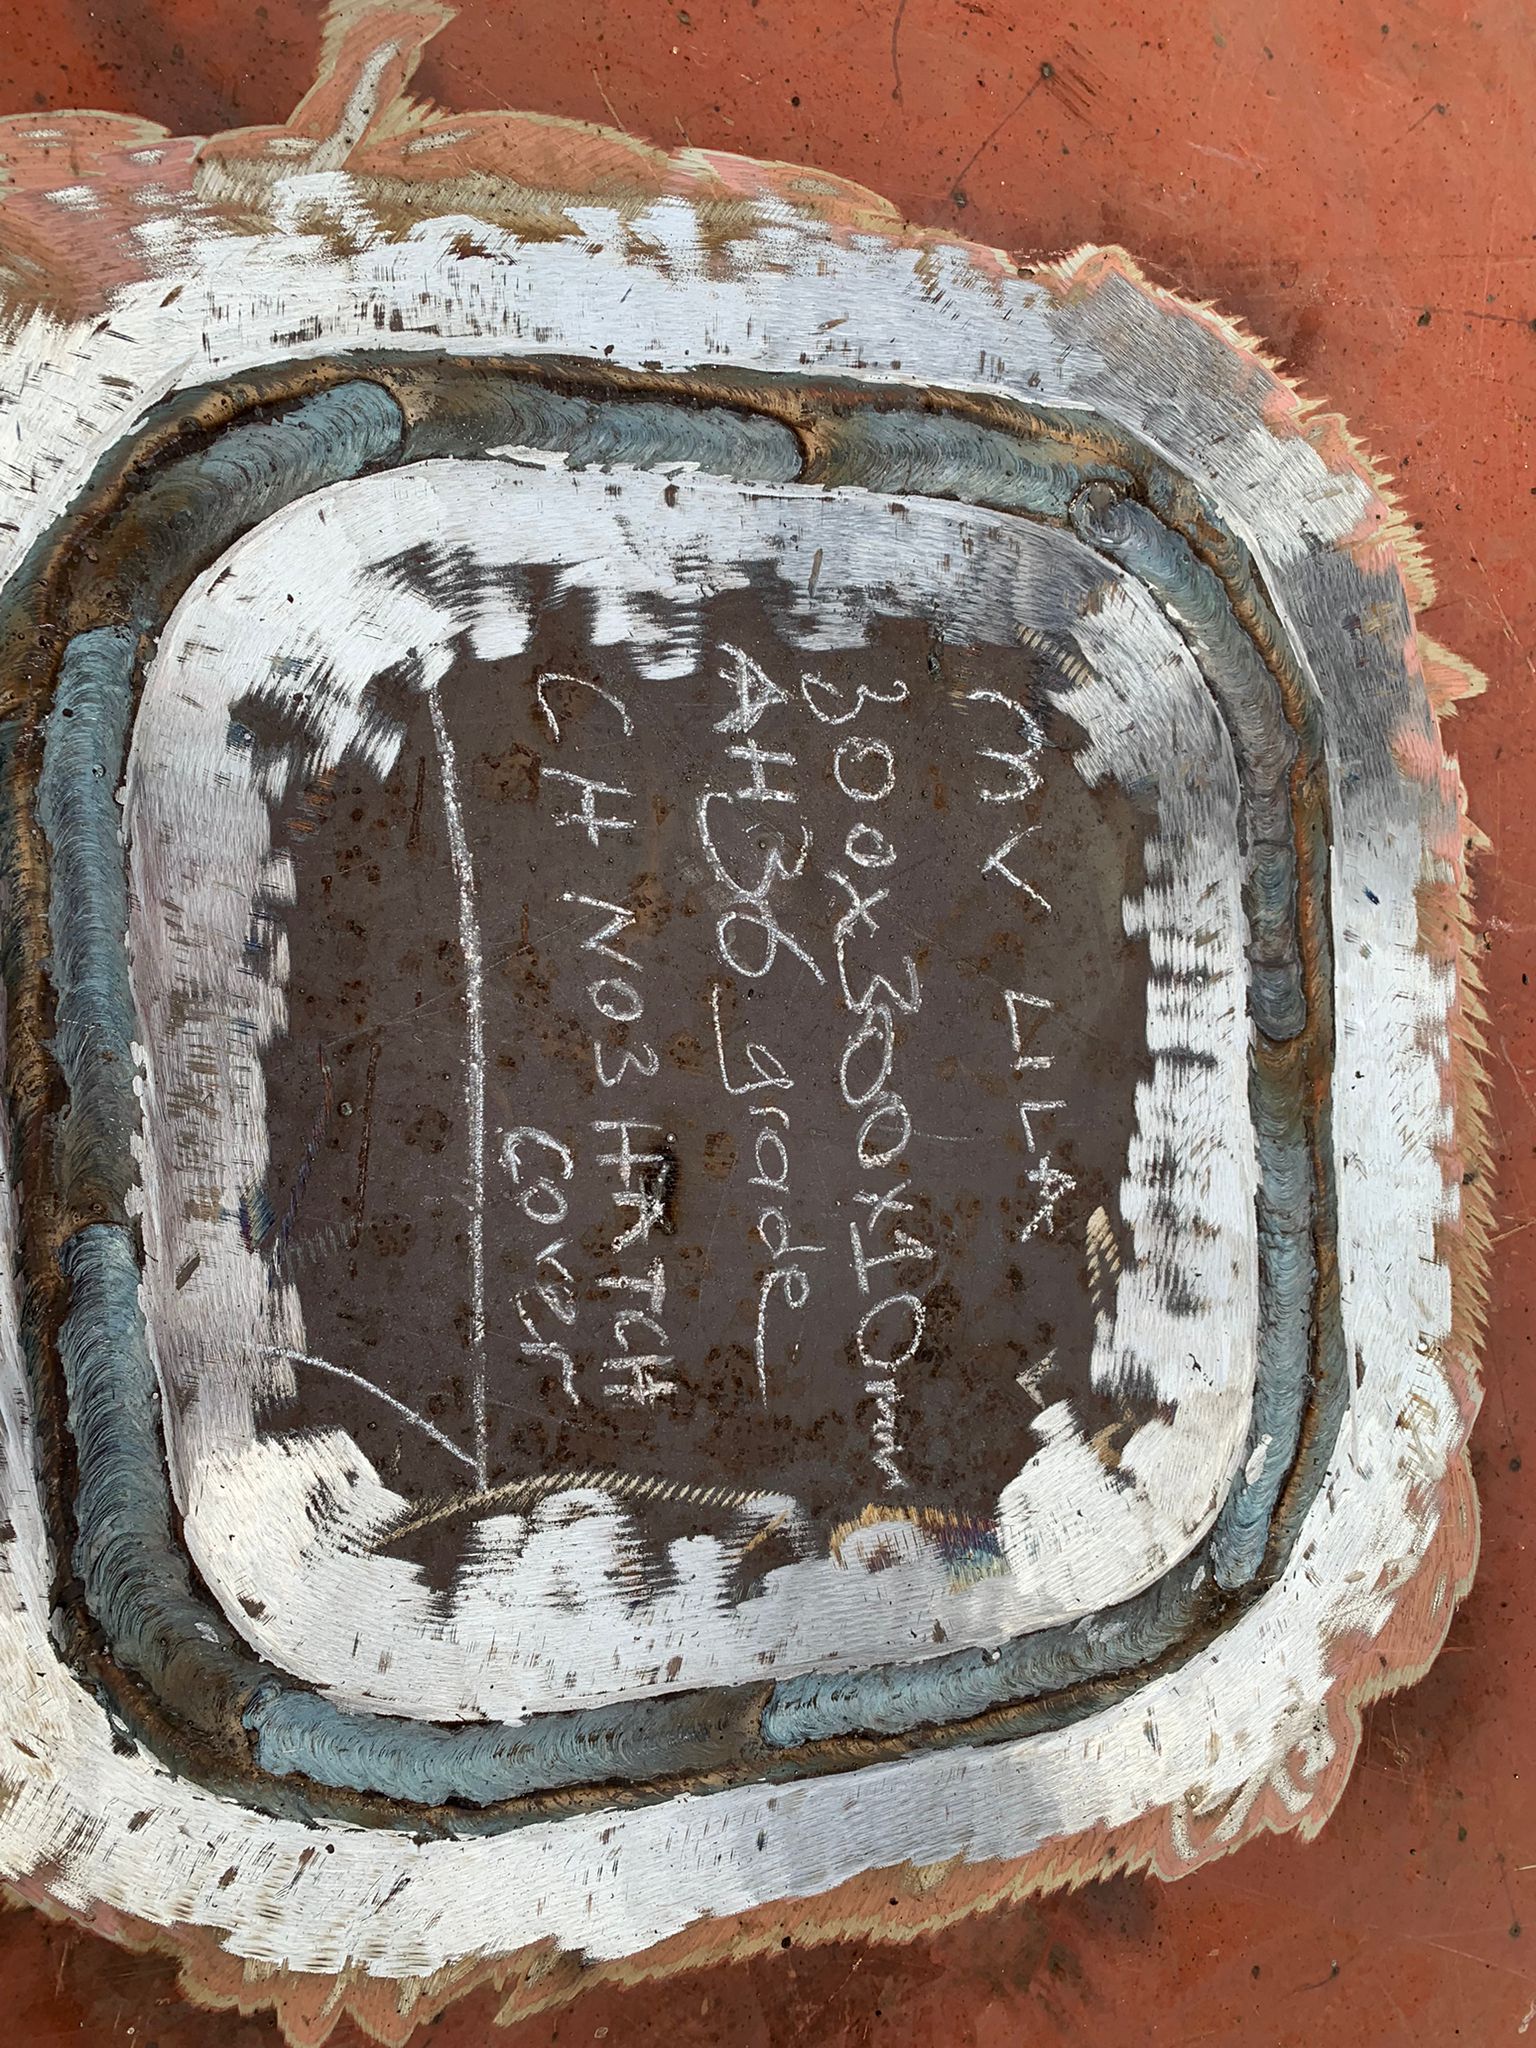 MV LILA
300x300x10mm
AH36 grade
CH NO3 HATCH
Cover